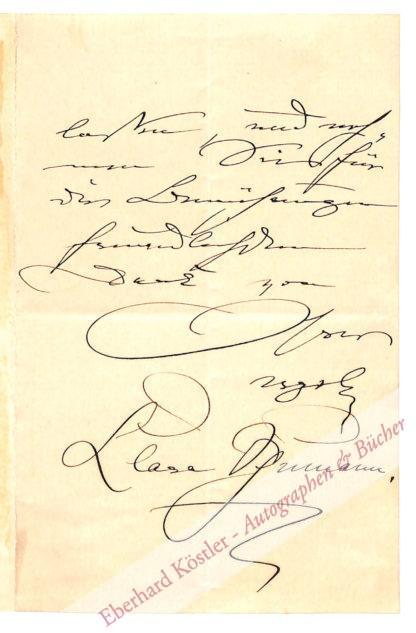 lassen, und neh-
men Sie für
die Bemühungen
freundlichsten
Dank von
Ihrer
ergeb.
Clara Schumann.
Eberhard Köstler - Autographen & Bücher